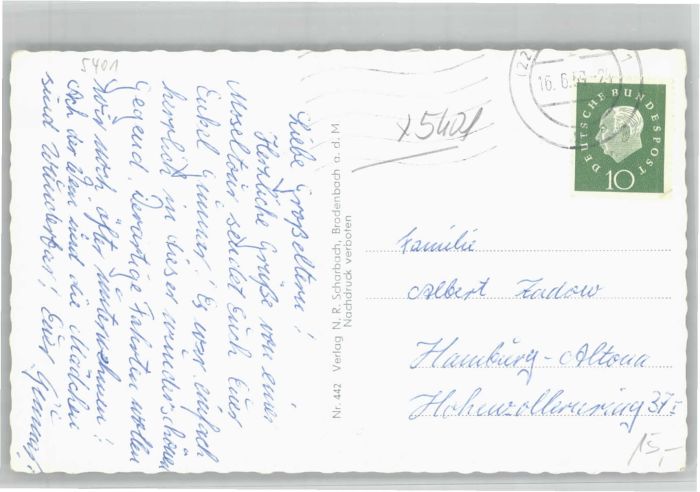 5401
Liebe Großeltern!
Herzliche Grüße von einer
Moseltour sendet Euch Euer
Enkel Günner! Es war einfach
herrlich in dieser wunderschönen
Gegend. Derartige Fahrten wollen
wir noch öfter unternehmen!
Ach der Wein und die Mädchen
sind wunderbar! Euer
Nr. 442 Verlag N. R. Scharbach, Brodenbach a. d. M
Nachdruck verboten
x 5401
(22
16. 6.59-2
DEUTSCHE BUNDESPOST
10
Familie
Albert Zadow
Hamburg-Altona
Hohenzollernring 37
15,-